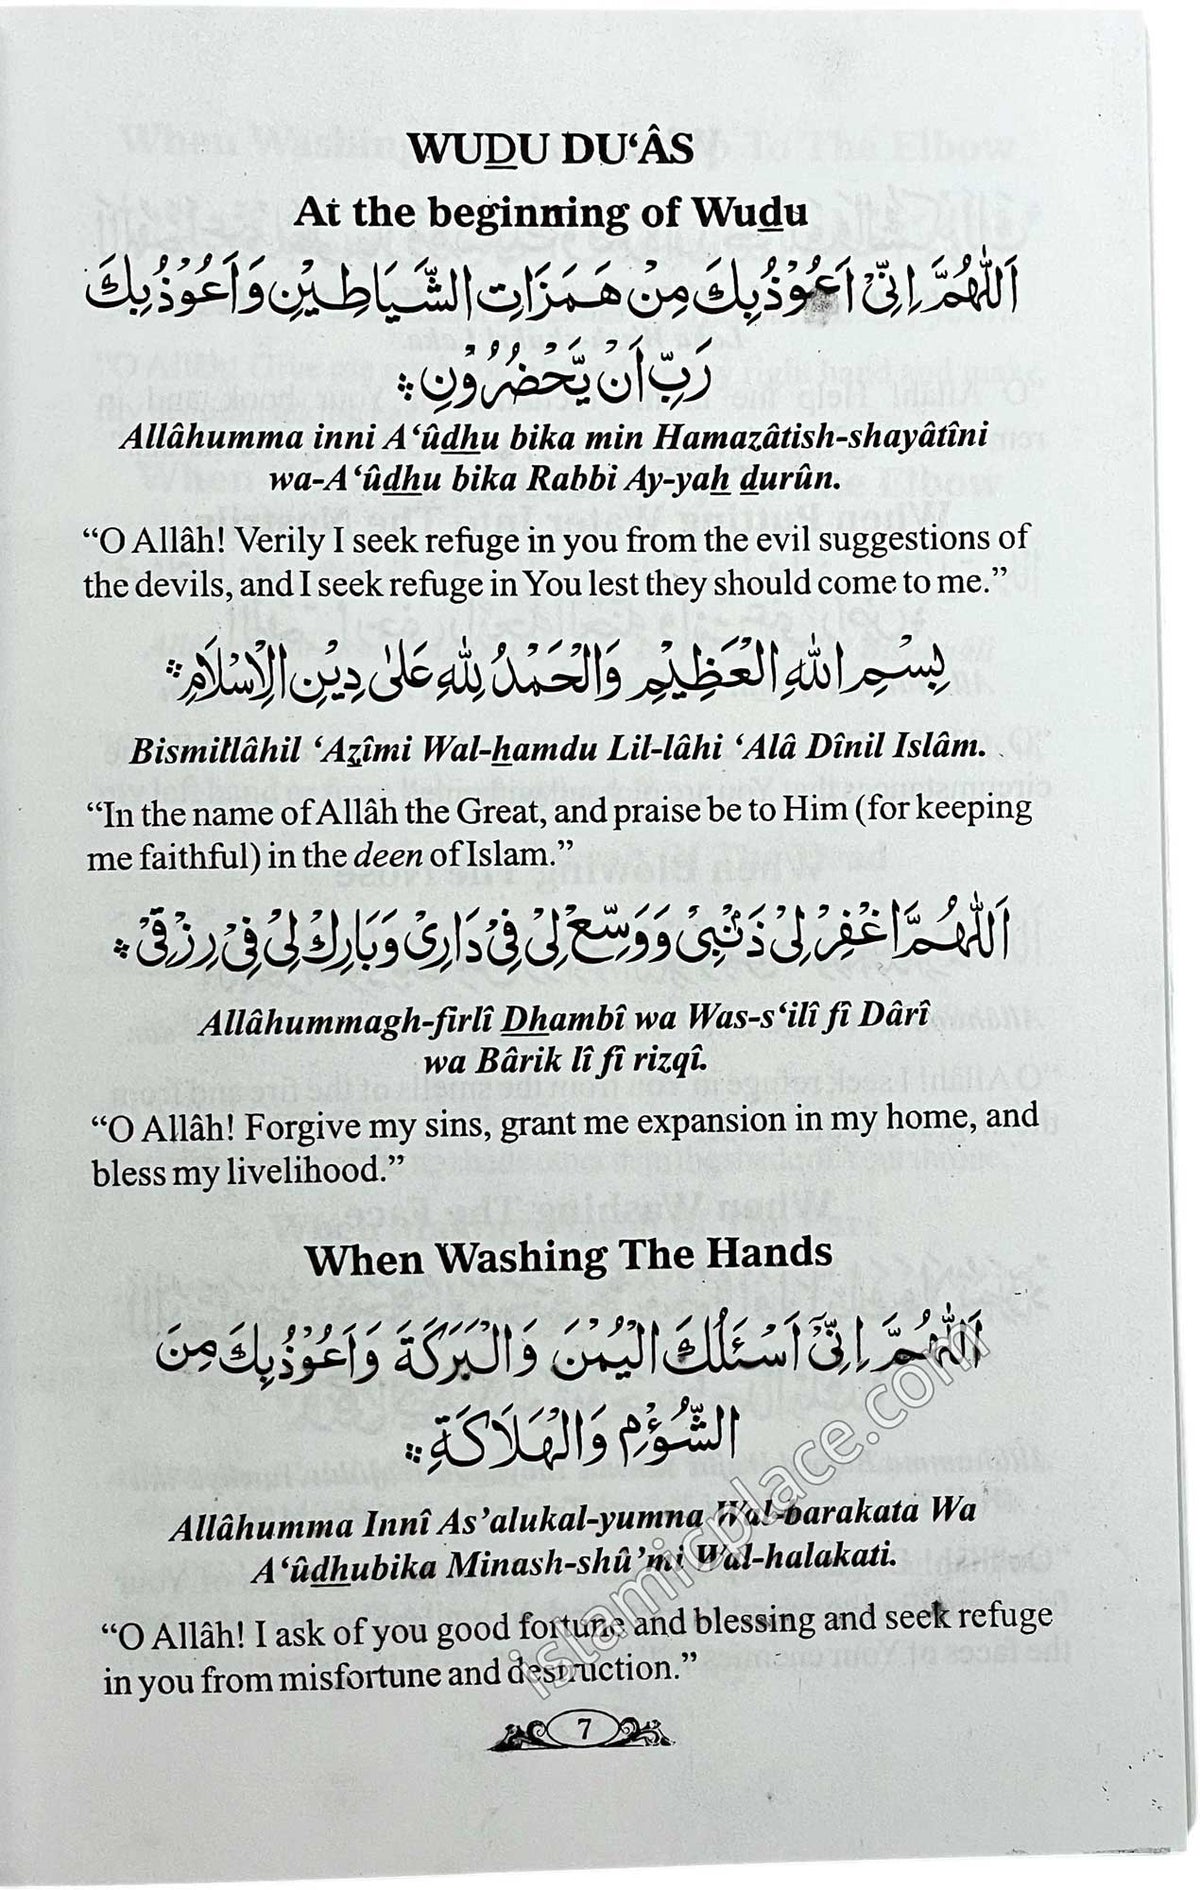 WUDU DU‘ÂS
At the beginning of Wudu
اَللّٰهُمَّ اِنِّىْ اَعُوْذُ بِكَ مِنْ هَمَزَاتِ الشَّيَاطِيْنِ وَاَعُوْذُ بِكَ
رَبِّ اَنْ يَّحْضُرُوْنِ
Allâhumma inni A‘ûdhu bika min Hamazâtish-shayâtîni
wa-A‘ûdhu bika Rabbi Ay-yah durûn.
“O Allâh! Verily I seek refuge in you from the evil suggestions of
the devils, and I seek refuge in You lest they should come to me.”
بِسْمِ اللهِ الْعَظِيْمِ وَالْحَمْدُ لِلّٰهِ عَلٰى دِيْنِ الْاِسْلَامِ
Bismillâhil ‘Azîmi Wal-hamdu Lil-lâhi ‘Alâ Dînil Islâm.
“In the name of Allâh the Great, and praise be to Him (for keeping
me faithful) in the deen of Islam.”
اَللّٰهُمَّ اغْفِرْ لِىْ ذَنْۢبِىْ وَوَسِّعْ لِىْ فِىْ دَارِىْ وَبَارِكْ لِىْ فِىْ رِزْقِىْ
Allâhummagh-firlî Dhambî wa Was-s‘ilî fî Dârî
wa Bârik lî fî rizqî.
“O Allâh! Forgive my sins, grant me expansion in my home, and
bless my livelihood.”
When Washing The Hands
اَللّٰهُمَّ اِنِّىْٓ اَسْئَلُكَ الْيُمْنَ وَالْبَرَكَةَ وَاَعُوْذُ بِكَ مِنَ
الشُّؤْمِ وَالْهَلَاكَةِ
Allâhumma Innî As’alukal-yumna Wal-barakata Wa
A‘ûdhubika Minash-shû’mi Wal-halakati.
“O Allâh! I ask of you good fortune and blessing and seek refuge
in you from misfortune and destruction.”
islamicplace.com
7